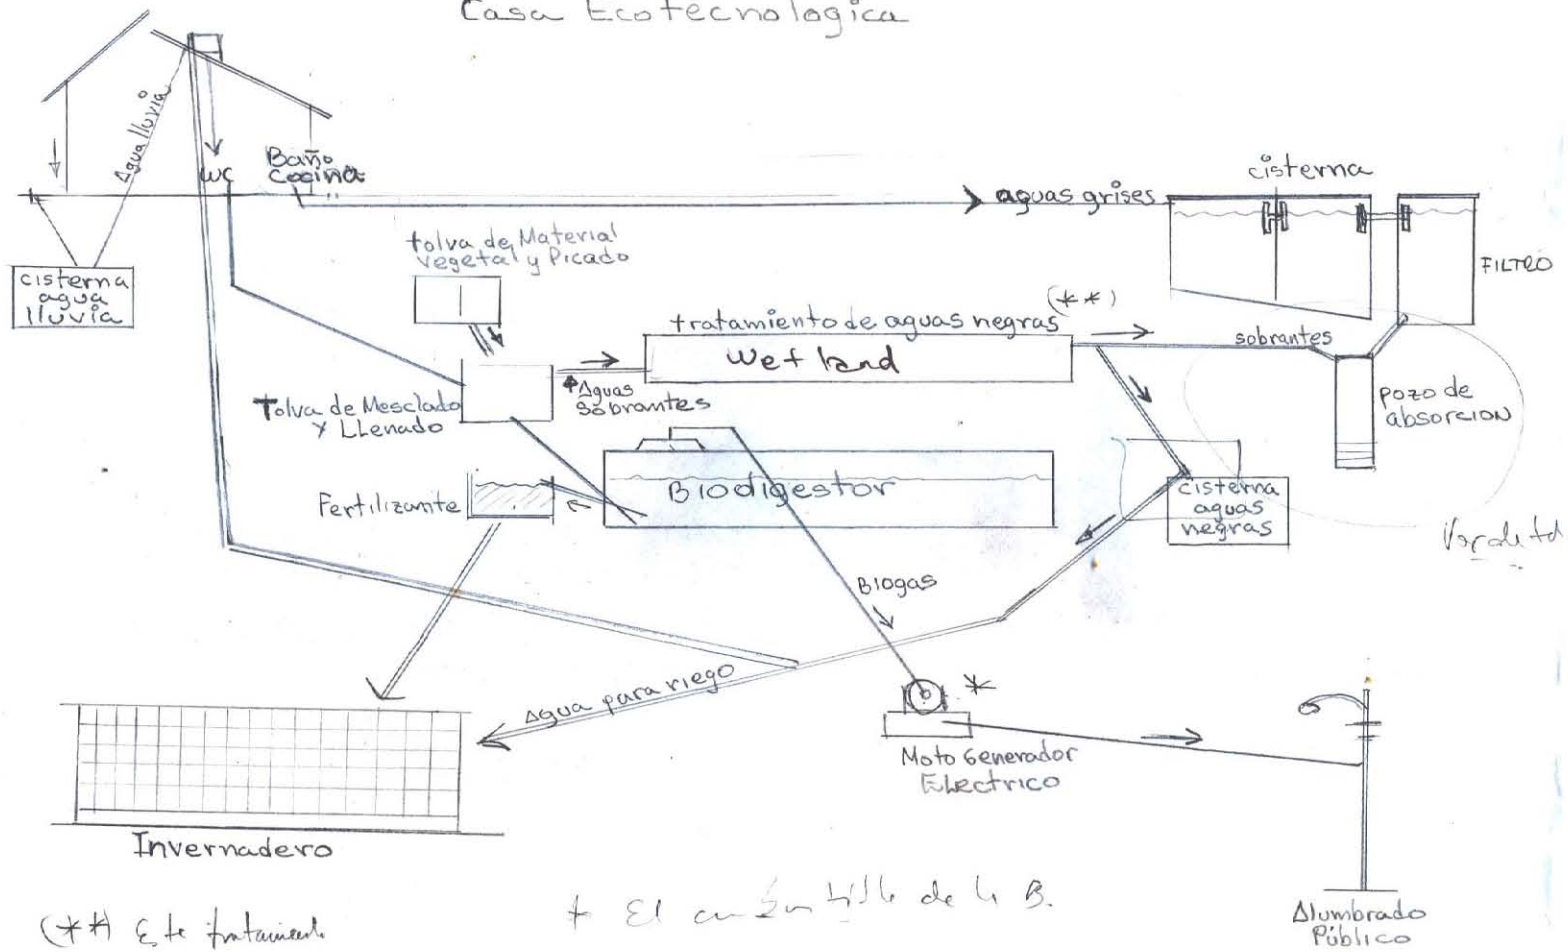 Casa Ecotecnologica
Agua lluvia
WC
Baño
Cocina
aguas grises
cisterna
FILTRO
cisterna
agua
lluvia
tolva de Material
vegetal y Picado
(**)
tratamiento de aguas negras
Wetland
sobrantes
Aguas
sobrantes
Tolva de Mesclado
y Llenado
pozo de
absorcion
Biodigestor
Fertilizante
cisterna
aguas
negras
Biogas
Agua para riego
*
Moto Generador
Electrico
Invernadero
(**) Este tratamiento
* El de la B.
Alumbrado
Público